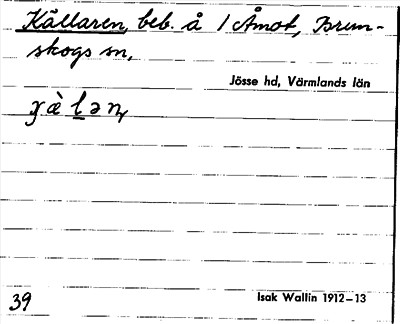 Källaren, beb. å 1 Åmot, Brun-
skogs sn.
Jösse hd, Värmlands län
39
Isak Wallin 1912–13